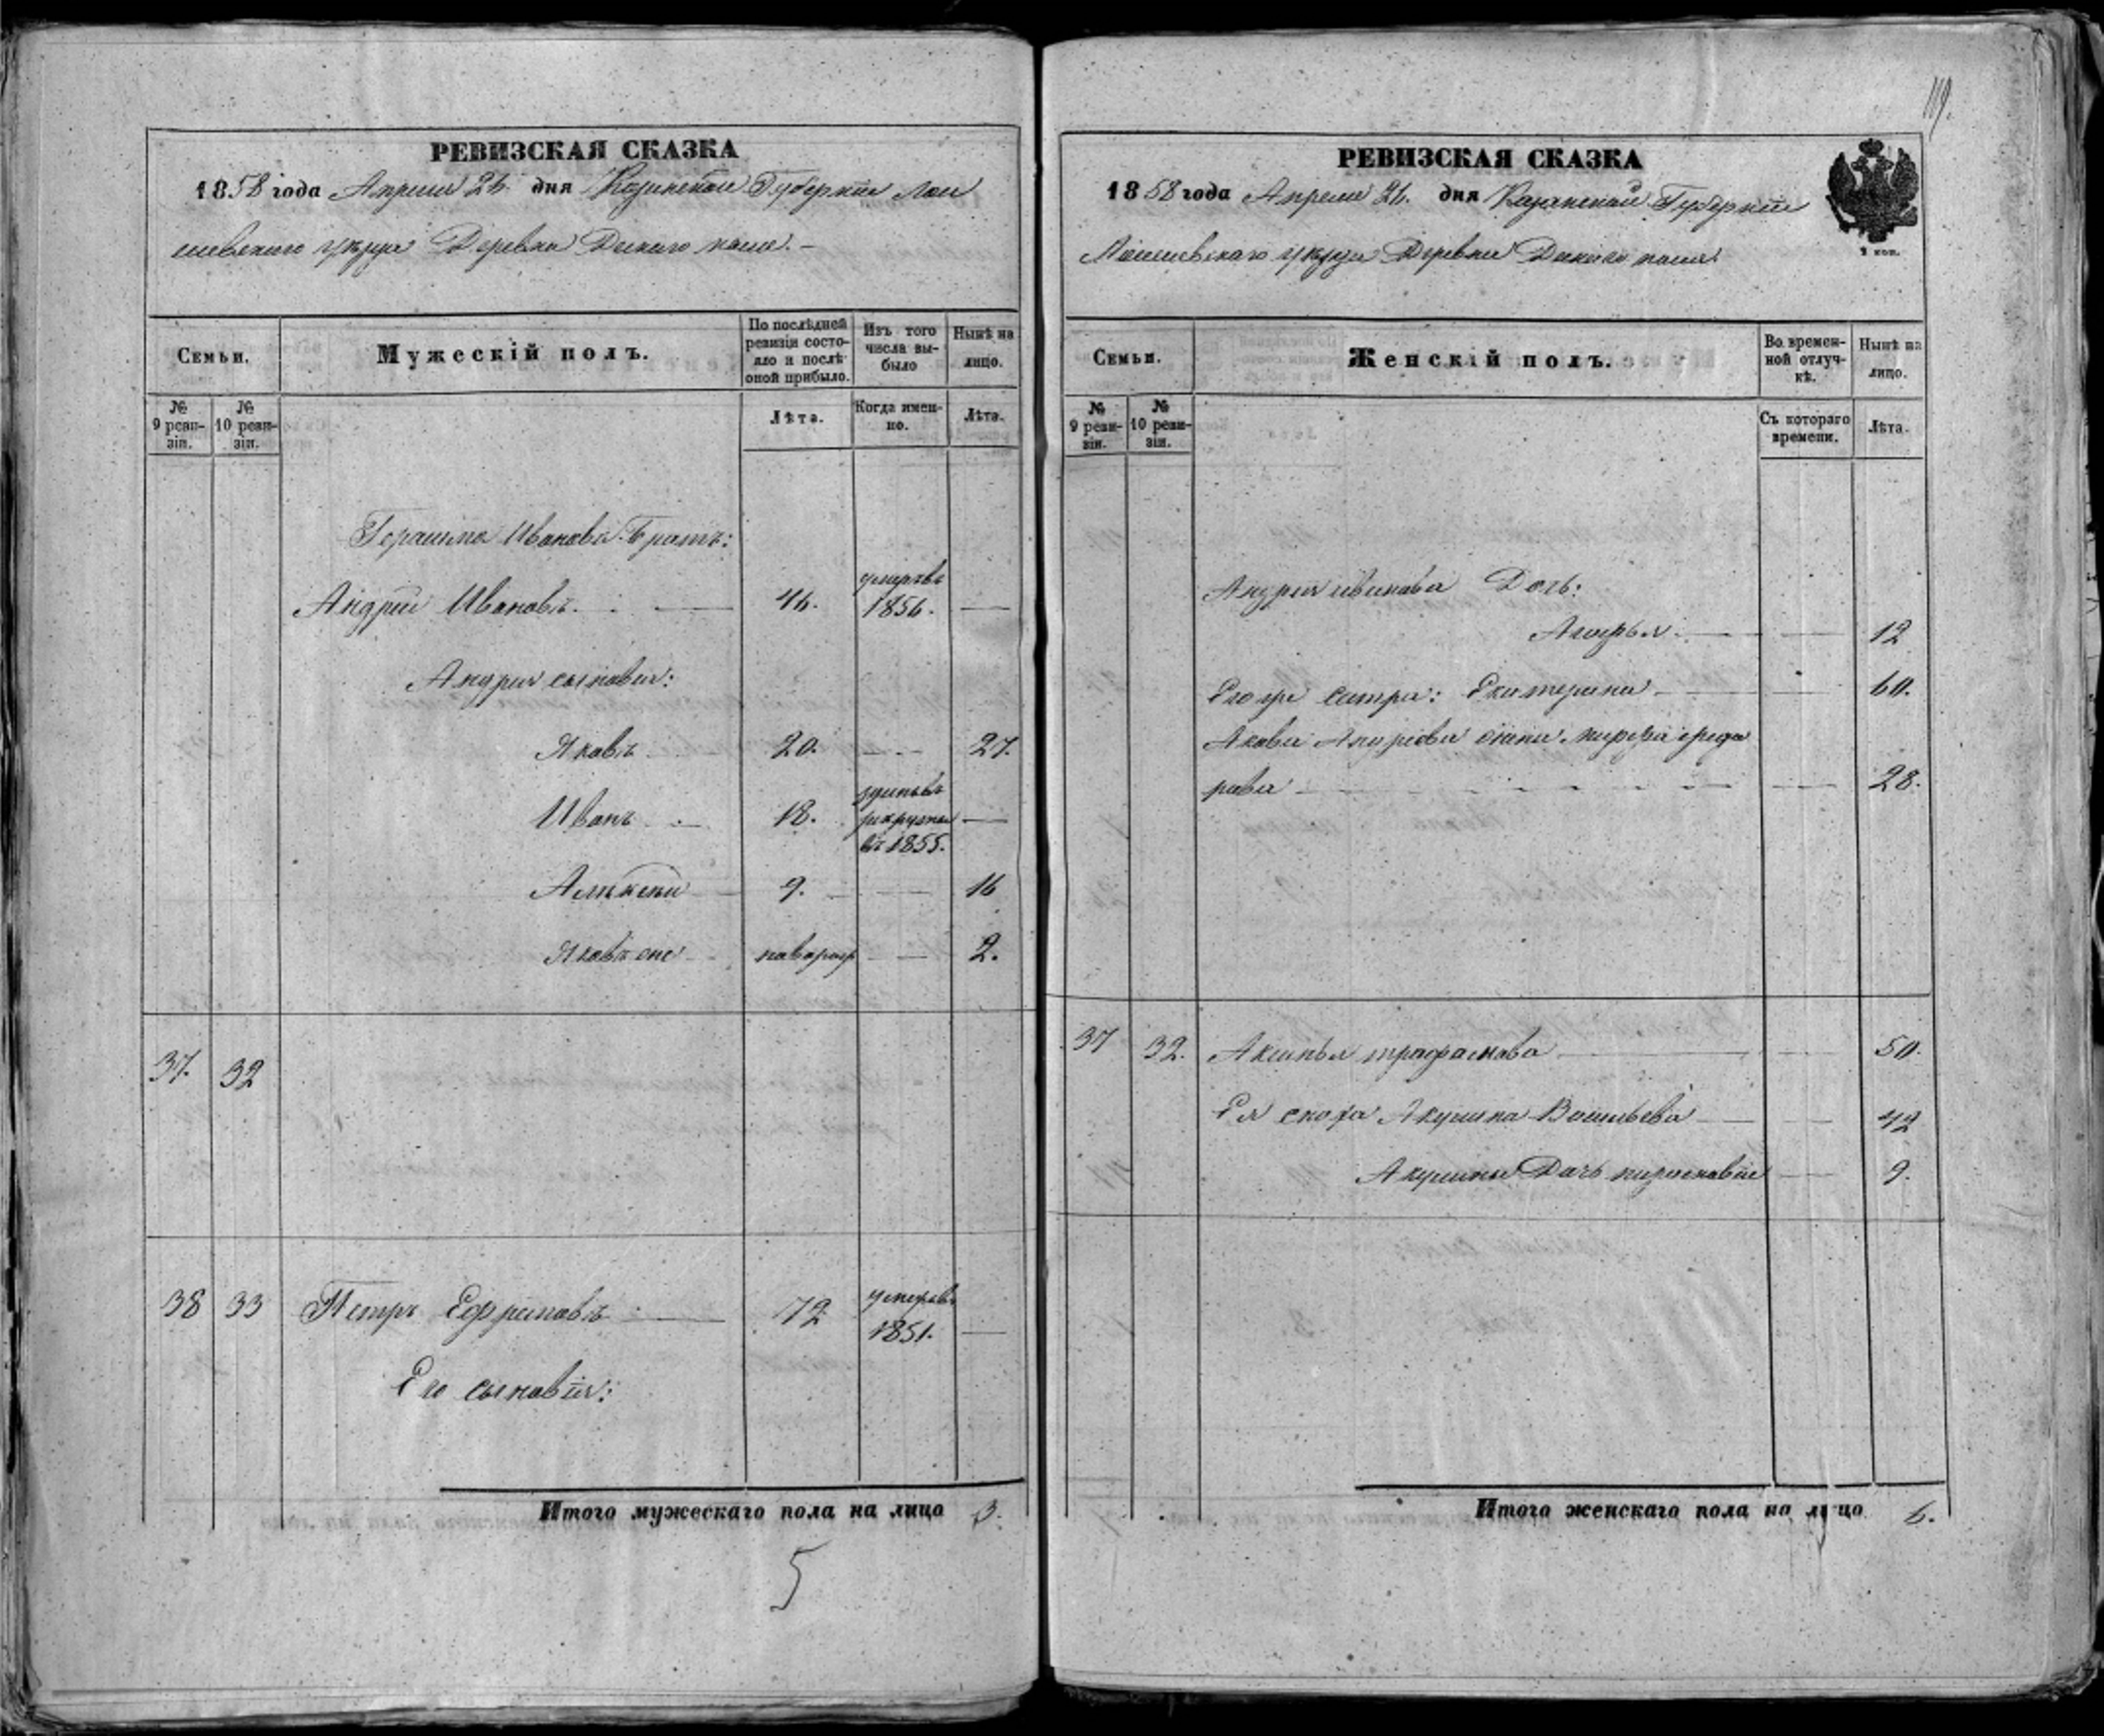 РЕВИЗСКАЯ СКАЗКА
1858 года Апреля 26 дня Казанской Губернiи Лаи
шевскаго уѣзда Деревни Дикаго поля.
Семьи.
Мужескiй полъ.
По послѣдней ревизiи состояло и послѣ оной прибыло.
Изъ того числа выбыло
Нынѣ на лицо.
№ 9 ревизiи.
№ 10 ревизiи.
Лѣта.
Когда именно.
Лѣта.
Герасима Иванова Братъ:
Андрей Ивановъ. 46. умеръ въ 1856.
Андрея сыновья:
Яковъ 20. 27.
Иванъ 18. рекруты въ 1855.
Алѣксѣй 9. 16
2.
37. 32
38 33 Петръ Ефремовъ 72 умеръ въ 1851.
Его сыновiя:
Итого мужескаго пола на лицо 3.
5
119.
РЕВИЗСКАЯ СКАЗКА
1858 года Апреля 26. дня Казанской Губернiи
Лаишевскаго уѣзда Деревни Дикаго поля
2 коп.
Семьи.
Женскiй полъ.
Во временной отлучкѣ.
Нынѣ на лицо.
№ 9 ревизiи.
№ 10 ревизiи.
Съ котораго времени.
Лѣта.
Андрея иванова Дочь:
12
Его же систра: Екатерина 60.
Акова Андреева жена
28.
37 32. Аксинья трафамова 50.
Ея сноха Акулина Васильева 42
Акулины Дочь 9.
Итого женскаго пола на лицо 6.